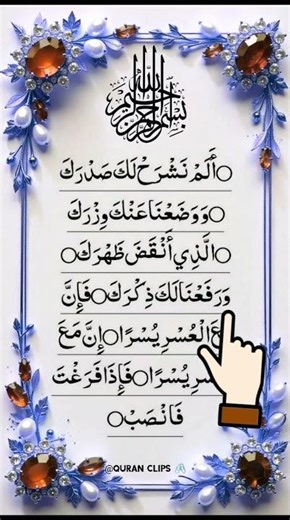 بسم الله الرحمن الرحيم
○أَلَمْ نَشْرَحْ لَكَ صَدْرَكَ
○وَوَضَعْنَا عَنْكَ وِزْرَكَ
الَّذِي أَنْقَضَ ظَهْرَكَ○
وَرَفَعْنَا لَكَ ذِكْرَكَ○فَإِنَّ
الْعُسْرِ يُسْرًا○إِنَّ مَعَ
يُسْرًا○فَإِذَا فَرَغْتَ
فَانْصَبْ○
@QURAN CLIPS